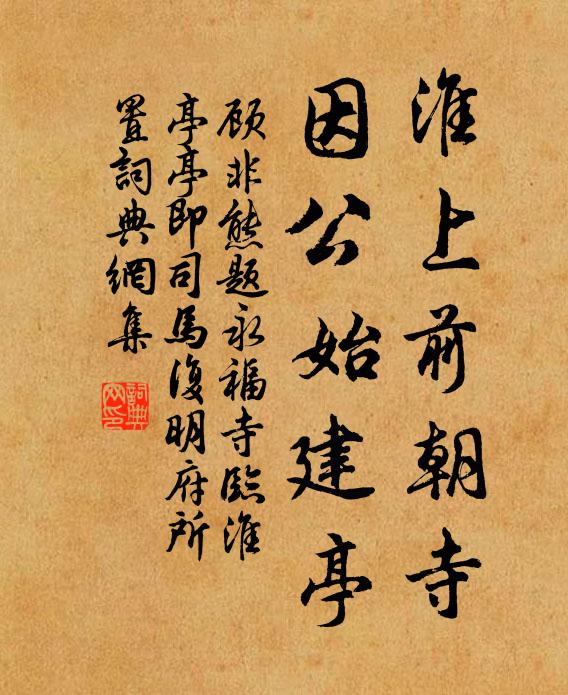 淮上前朝寺
因公始建亭
顾非熊题永福寺臨淮
亭亭即司馬復明府所
置詞典網集
詞典网印